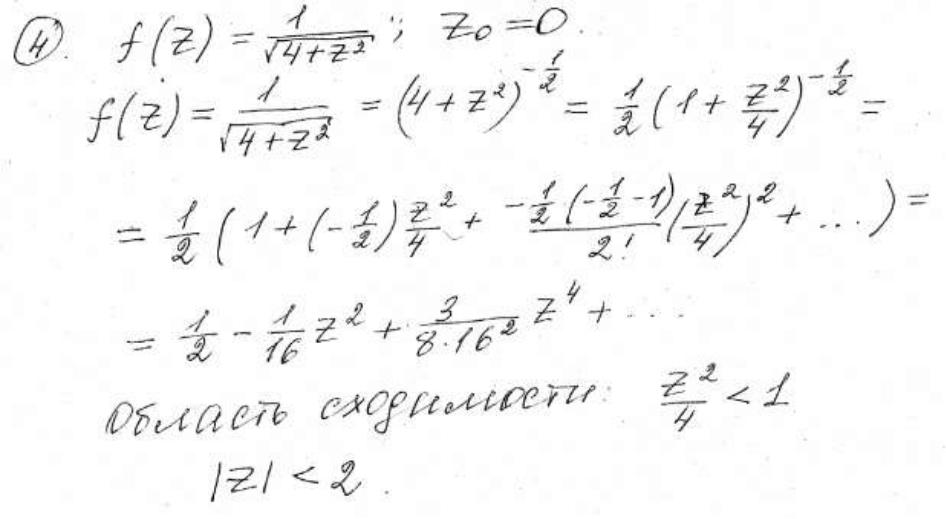 ④. f(z) = 1/√(4+z²) ; z₀ = 0.
f(z) = 1/√(4+z²) = (4+z²)^(-1/2) = 1/2 (1 + z²/4)^(-1/2) =
= 1/2 (1 + (-1/2) z²/4 + (-1/2·(-1/2-1))/2! (z²/4)² + ...) =
= 1/2 - 1/16 z² + 3/(8·16²) z⁴ + ...
Область сходимости: z²/4 < 1
|z| < 2.